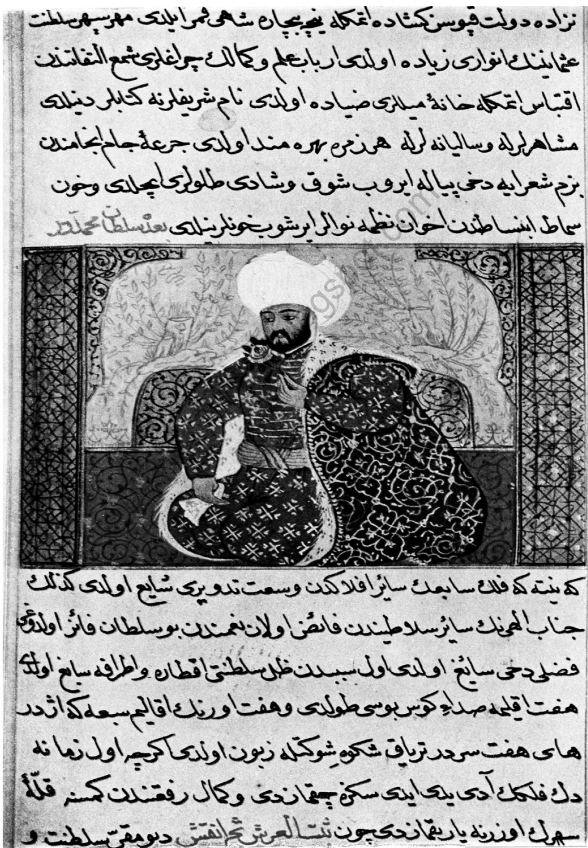 نژاده دولت قپوسن کشاده اتمکله نیچه بیچاره شاهی قمر ایلدی مهر سپهر سلطنت
عثمانینك انواری زیاده اولدی ارباب علم وکمالك چراغلری شمع التفاتندن
اقتباس اتمکله خانۀ میللری ضیاده اولدی نام شریفلرنه کتابلر دینلدی
مشاهرلرله وسالیانه لرله هر زمره بهره مند اولدی جرعۀ جام انجامندن
بزم شعرایه دخی پیاله ایروب شوق وشادی طلولری ایچلدی وخون
سماط انبساطندن اخوان نظمه نوالر ایرشوب خونلر ینلدی بعده سلطان محمددر
که یتنه که فلك سابعك سائر افلاکدن وسعت تدویری شایع اولدی کذلك
جناب الهینك سائر سلاطیندن فائض اولان نعمندن بو سلطان فائز اولدوغی
فضلی دخی سایغ اولدی اول سببدن ظل سلطنتی اقطاره واطرافه سابغ اولدی
هفت اقلیمه صداء کوس بوسی طولدی وهفت اورنك اقالیم سبعه که اژدر
های هفت سردر تریاق شکوه شوکتله زبون اولدی اکرچه اول زمانه
دك فلکك آدی یدی ایدی سکزه چقمازدی وکمال رفعتندن کمسنه قلّۀ
سهرك اوزرنه یاریقمازدی چون ثبت العرش ثم انقش دیو مقرّ سلطنت و